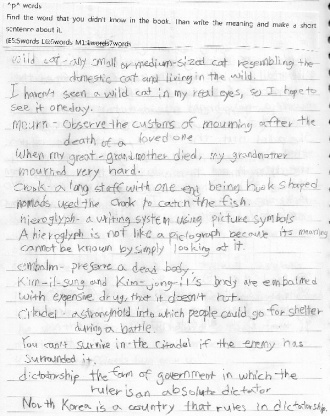 "p" words
Find the word that you didn't know in the book. Then write the meaning and make a short
sentence about it.
(E5:5words L6:6words M1:6words7words
wild cat - any small or medium-sized cat resembling the
domestic cat and living in the wild.
I haven't seen a wild cat in my real eyes, so I hope to
see it oneday.
mourn - Observe the customs of mourning after the
death of a loved one
When my great-grandmother died, my grandmother
mourned very hard.
Crook - a long staff with one end being hook shaped
nomads used the crook to catch the fish.
hieroglyph - a writing system using picture symbols
A hieroglyph is not like a pictograph because its meaning
cannot be known by simply looking at it.
embalm - preserve a dead body.
Kim-il-sung and Kim-jong-il's body are embalmed
with expensive drug, that it doesn't rot.
Citadel - a stronghold into which people could go for shelter
during a battle.
You can't survive in the citadel if the enemy has
surrounded it.
dictatorship the form of government in which the
ruler is an absolute dictator
North Korea is a country that rules in dictatorship